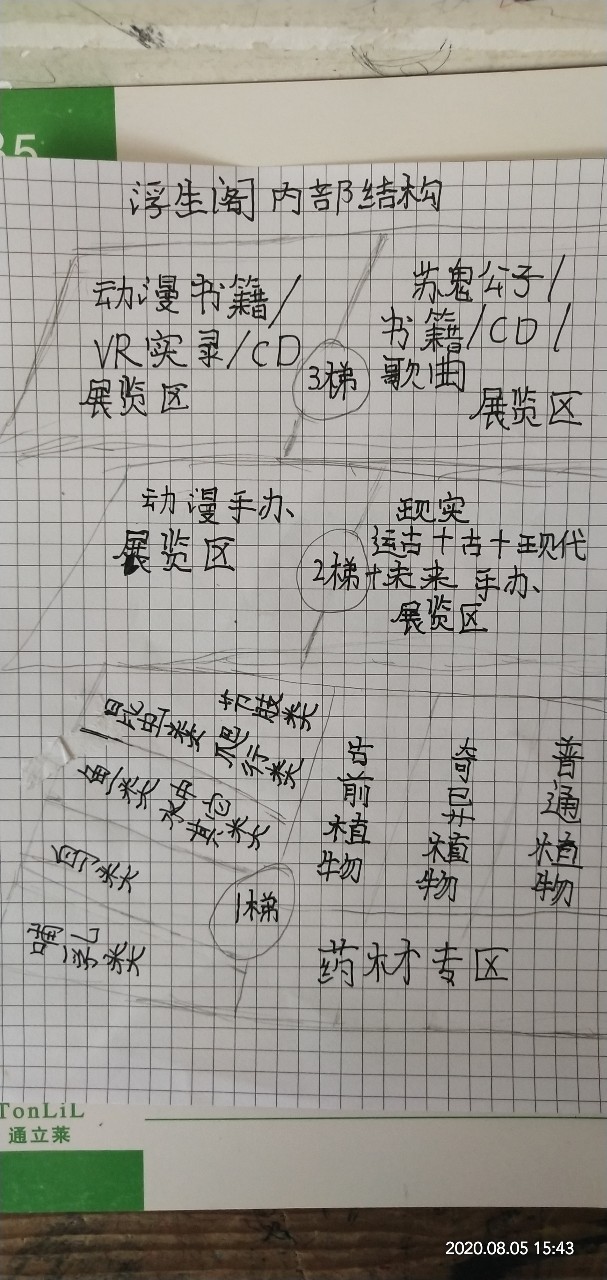 35
浮生阁内部结构
动漫书籍/
VR实录/CD
展览区
3梯
苏鬼公子/
书籍/CD/
歌曲
展览区
动漫手办
展览区
2梯
现实
远古+古+现代
+未来 手办
展览区
昆虫类
节肢类
爬行类
鱼类
水中其它类
鸟类
哺乳类
1梯
古前植物
奇异植物
普通植物
药材专区
TonLiL
通立莱
2020.08.05 15:43